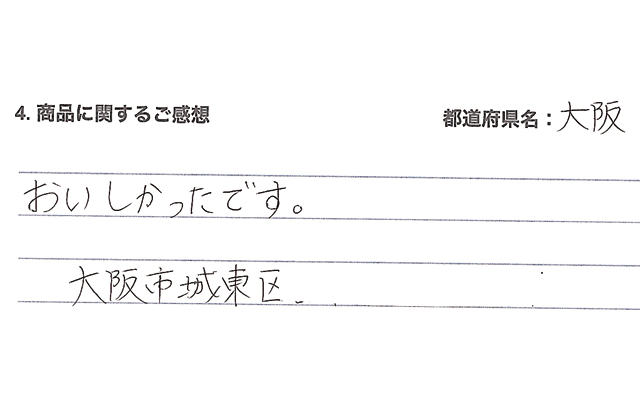 4. 商品に関するご感想
都道府県名：大阪
おいしかったです。
大阪市城東区